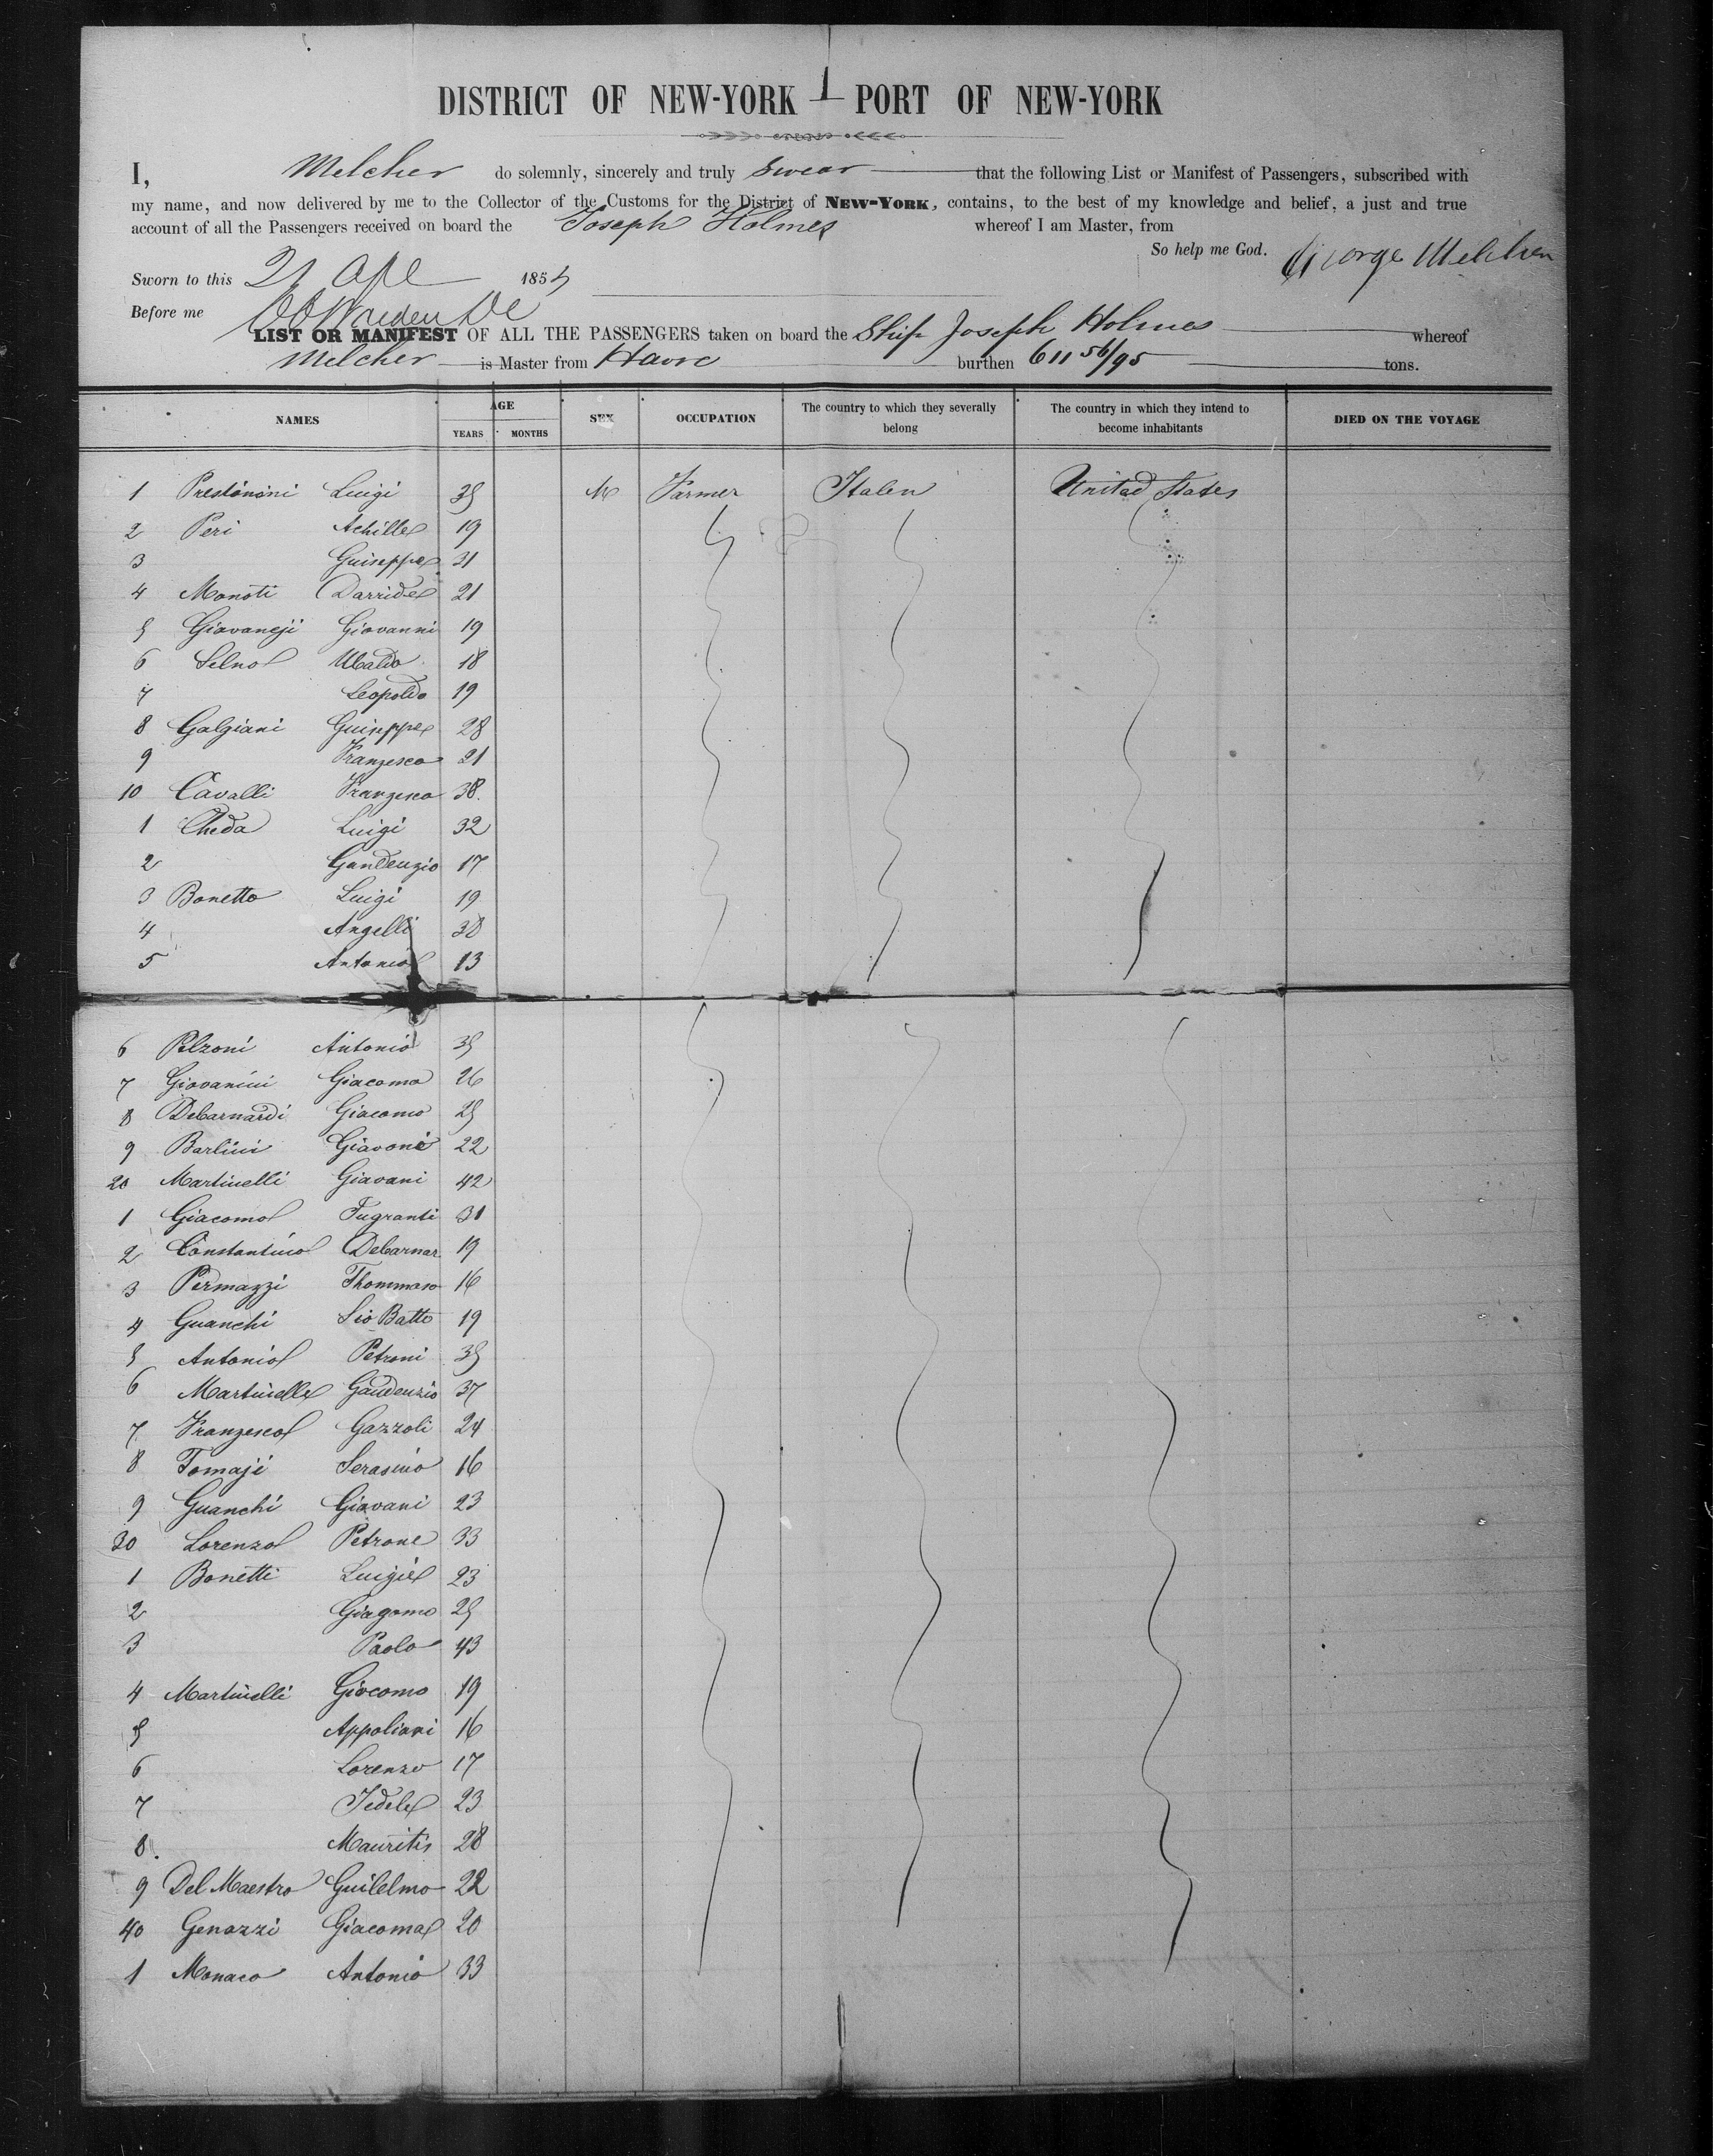 1
DISTRICT OF NEW-YORK — PORT OF NEW-YORK
I, Melcher do solemnly, sincerely and truly swear that the following List or Manifest of Passengers, subscribed with
my name, and now delivered by me to the Collector of the Customs for the District of NEW-YORK, contains, to the best of my knowledge and belief, a just and true
account of all the Passengers received on board the Joseph Holmes whereof I am Master, from
So help me God. George Melcher
Sworn to this 21 Apl 1855
Before me
LIST OR MANIFEST OF ALL THE PASSENGERS taken on board the Ship Joseph Holmes whereof
Melcher is Master from Havre burthen 611 56/95 tons.
NAMES AGE YEARS MONTHS SEX OCCUPATION The country to which they severally belong The country in which they intend to become inhabitants DIED ON THE VOYAGE
1 Prestinini Luigi 35 M Farmer Italen United States
2 Peri Achille 19
3 Guiseppe 31
4 Monoti Darride 21
5 Giovaneji Giovanni 19
6 Selno Ubaldo 18
7 Leopoldo 19
8 Galgiani Guiseppe 28
9 Franzesco 21
10 Cavalli Franzesco 38
1 Cheda Luigi 32
2 Gandenzio 17
3 Bonetto Luigi 19
4 Angelli 30
5 Antonio 13
6 Pelzoni Antonio 35
7 Giovanini Giacomo 26
8 Debarnardi Giacomo 25
9 Barlini Giavoni 22
20 Martinelli Giavani 42
1 Giacomo Tugranti 31
2 Constantino Debarnar 19
3 Permazzi Thommaso 16
4 Guanchi Gio Batto 19
5 Antonio Petroni 35
6 Martinelle Gaudenzio 37
7 Franzesco Gazzoli 24
8 Tomaji Serasino 16
9 Guanchi Giavani 23
30 Lorenzo Petrone 33
1 Bonetti Luigie 23
2 Giagomo 25
3 Paolo 43
4 Martinelli Giocomo 19
5 Appoliani 16
6 Lorenzo 17
7 Fedele 23
8 Mauritis 28
9 Del Maestro Guilelmo 22
40 Genazzi Giacoma 20
1 Monaco Antonio 33